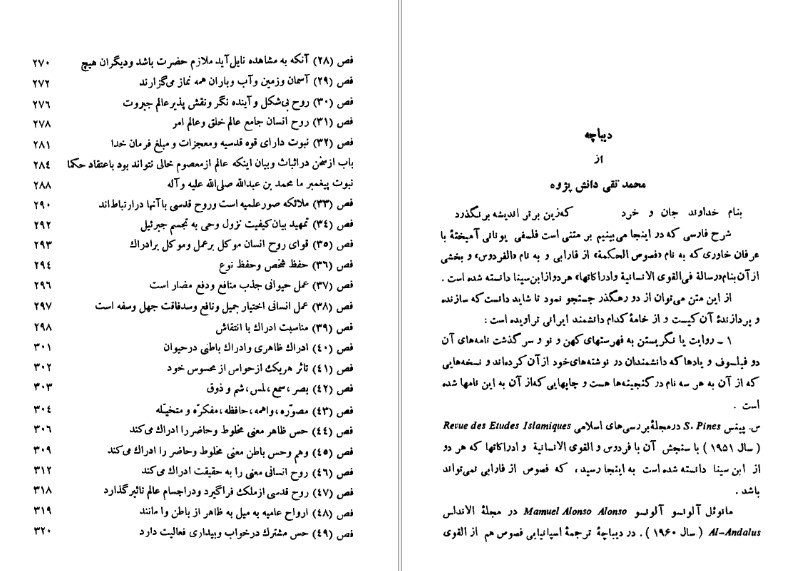 دیباچه
از
محمد تقی دانش پژوه
بنام خداوند جان و خرد کزین برتر اندیشه برنگذرد
شرح فارسی که در اینجا می‌بینیم بر متنی است فلسفی یونانی آمیختهٔ با
عرفان خاوری که به نام «فصوص الحکمة» از فارابی و به نام «الفردوس» و بخشی
از آن بنام «رسالة فی القوی الانسانیة وادراکاتها» هر دو از ابن سینا دانسته شده است .
از این متن می‌توان از دو رهگذر جستجو نمود تا شاید دانست که سازنده
و پردازندهٔ آن کیست و از خامهٔ کدام دانشمند ایرانی تراویده است :
۱ ـ روایت یا نگریستن به فهرستهای کهن و نو و سرگذشت نامه‌های آن
دو فیلسوف و یادها که دانشمندان در نوشته‌های خود از آن کرده‌اند و نسخه‌هایی
که از آن به هر سه نام در گنجینه‌ها هست و چاپهایی که از آن به این نامها شده
است .
س. پینس S. Pines در مجلهٔ بررسی‌های اسلامی Revue des Etudes Islamiques
( سال ۱۹۵۱ ) با سنجش آن با فردوس و القوی الانسانیة و ادراکاتها که هر دو
از ابن سینا دانسته شده است به اینجا رسید، که فصوص از فارابی نمی‌تواند
باشد .
مانوئل آلونسو آلونسو Manuel Alonso Alonso در مجلهٔ الاندلس
Al-Andalus ( سال ۱۹۶۰ ) . در دیباچهٔ ترجمهٔ اسپانیایی فصوص هم از القوی
فص (۲۸) آنکه به مشاهده نایل آید ملازم حضرت باشد ودیگران هیچ ۲۷۰
فص (۲۹) آسمان وزمین وآب وباران همه نماز می‌گزارند ۲۷۲
فص (۳۰) روح بی‌شکل وآینده نگر ونقش پذیر عالم جبروت ۲۷۶
فص (۳۱) روح انسان جامع عالم خلق وعالم امر ۲۷۸
فص (۳۲) نبوت دارای قوه قدسیه ومعجزات و مبلغ فرمان خدا ۲۸۱
باب از سخن در اثبات وبیان اینکه عالم از معصوم خالی نتواند بود باعتقاد حکما ۲۸۴
نبوت پیغمبر ما محمد بن عبدالله صلی‌الله علیه و آله ۲۸۸
فص (۳۳) ملائکه صور علمیه است وروح قدسی با آنها در ارتباط‌اند ۲۹۰
فص (۳۴) تمهید بیان کیفیت نزول وحی به تجسم جبرئیل ۲۹۲
فص (۳۵) قوای روح انسان موکل بر عمل وموکل بر ادراک ۲۹۳
فص (۳۶) حفظ شخص وحفظ نوع ۲۹۴
فص (۳۷) عمل حیوانی جذب منافع ودفع مضار است ۲۹۶
فص (۳۸) عمل انسانی اختیار جمیل ونافع وسدفاقت جهل وسفه است ۲۹۷
فص (۳۹) مناسبت ادراک با انتقاش ۲۹۸
فص (۴۰) ادراک ظاهری وادراک باطنی در حیوان ۳۰۱
فص (۴۱) تاثر هریک از حواس از محسوس خود ۳۰۲
فص (۴۲) بصر، سمع، لمس، شم و ذوق ۳۰۳
فص (۴۳) مصوّره، واهمه، حافظه، مفکره و متخیّله ۳۰۴
فص (۴۴) حس ظاهر معنی مخلوط وحاضر را ادراک می‌کند ۳۰۶
فص (۴۵) وهم وحس باطن معنی مخلوط وحاضر را ادراک می‌کند ۳۰۹
فص (۴۶) روح انسانی معنی را به حقیقت ادراک می‌کند ۳۱۲
فص (۴۷) روح قدسی از ملک فراگیرد ودر اجسام عالم تاثیر گذارد ۳۱۸
فص (۴۸) ارواح عامیه به میل به ظاهر از باطن وا مانند ۳۱۹
فص (۴۹) حس مشترک در خواب وبیداری فعالیت دارد ۳۲۰